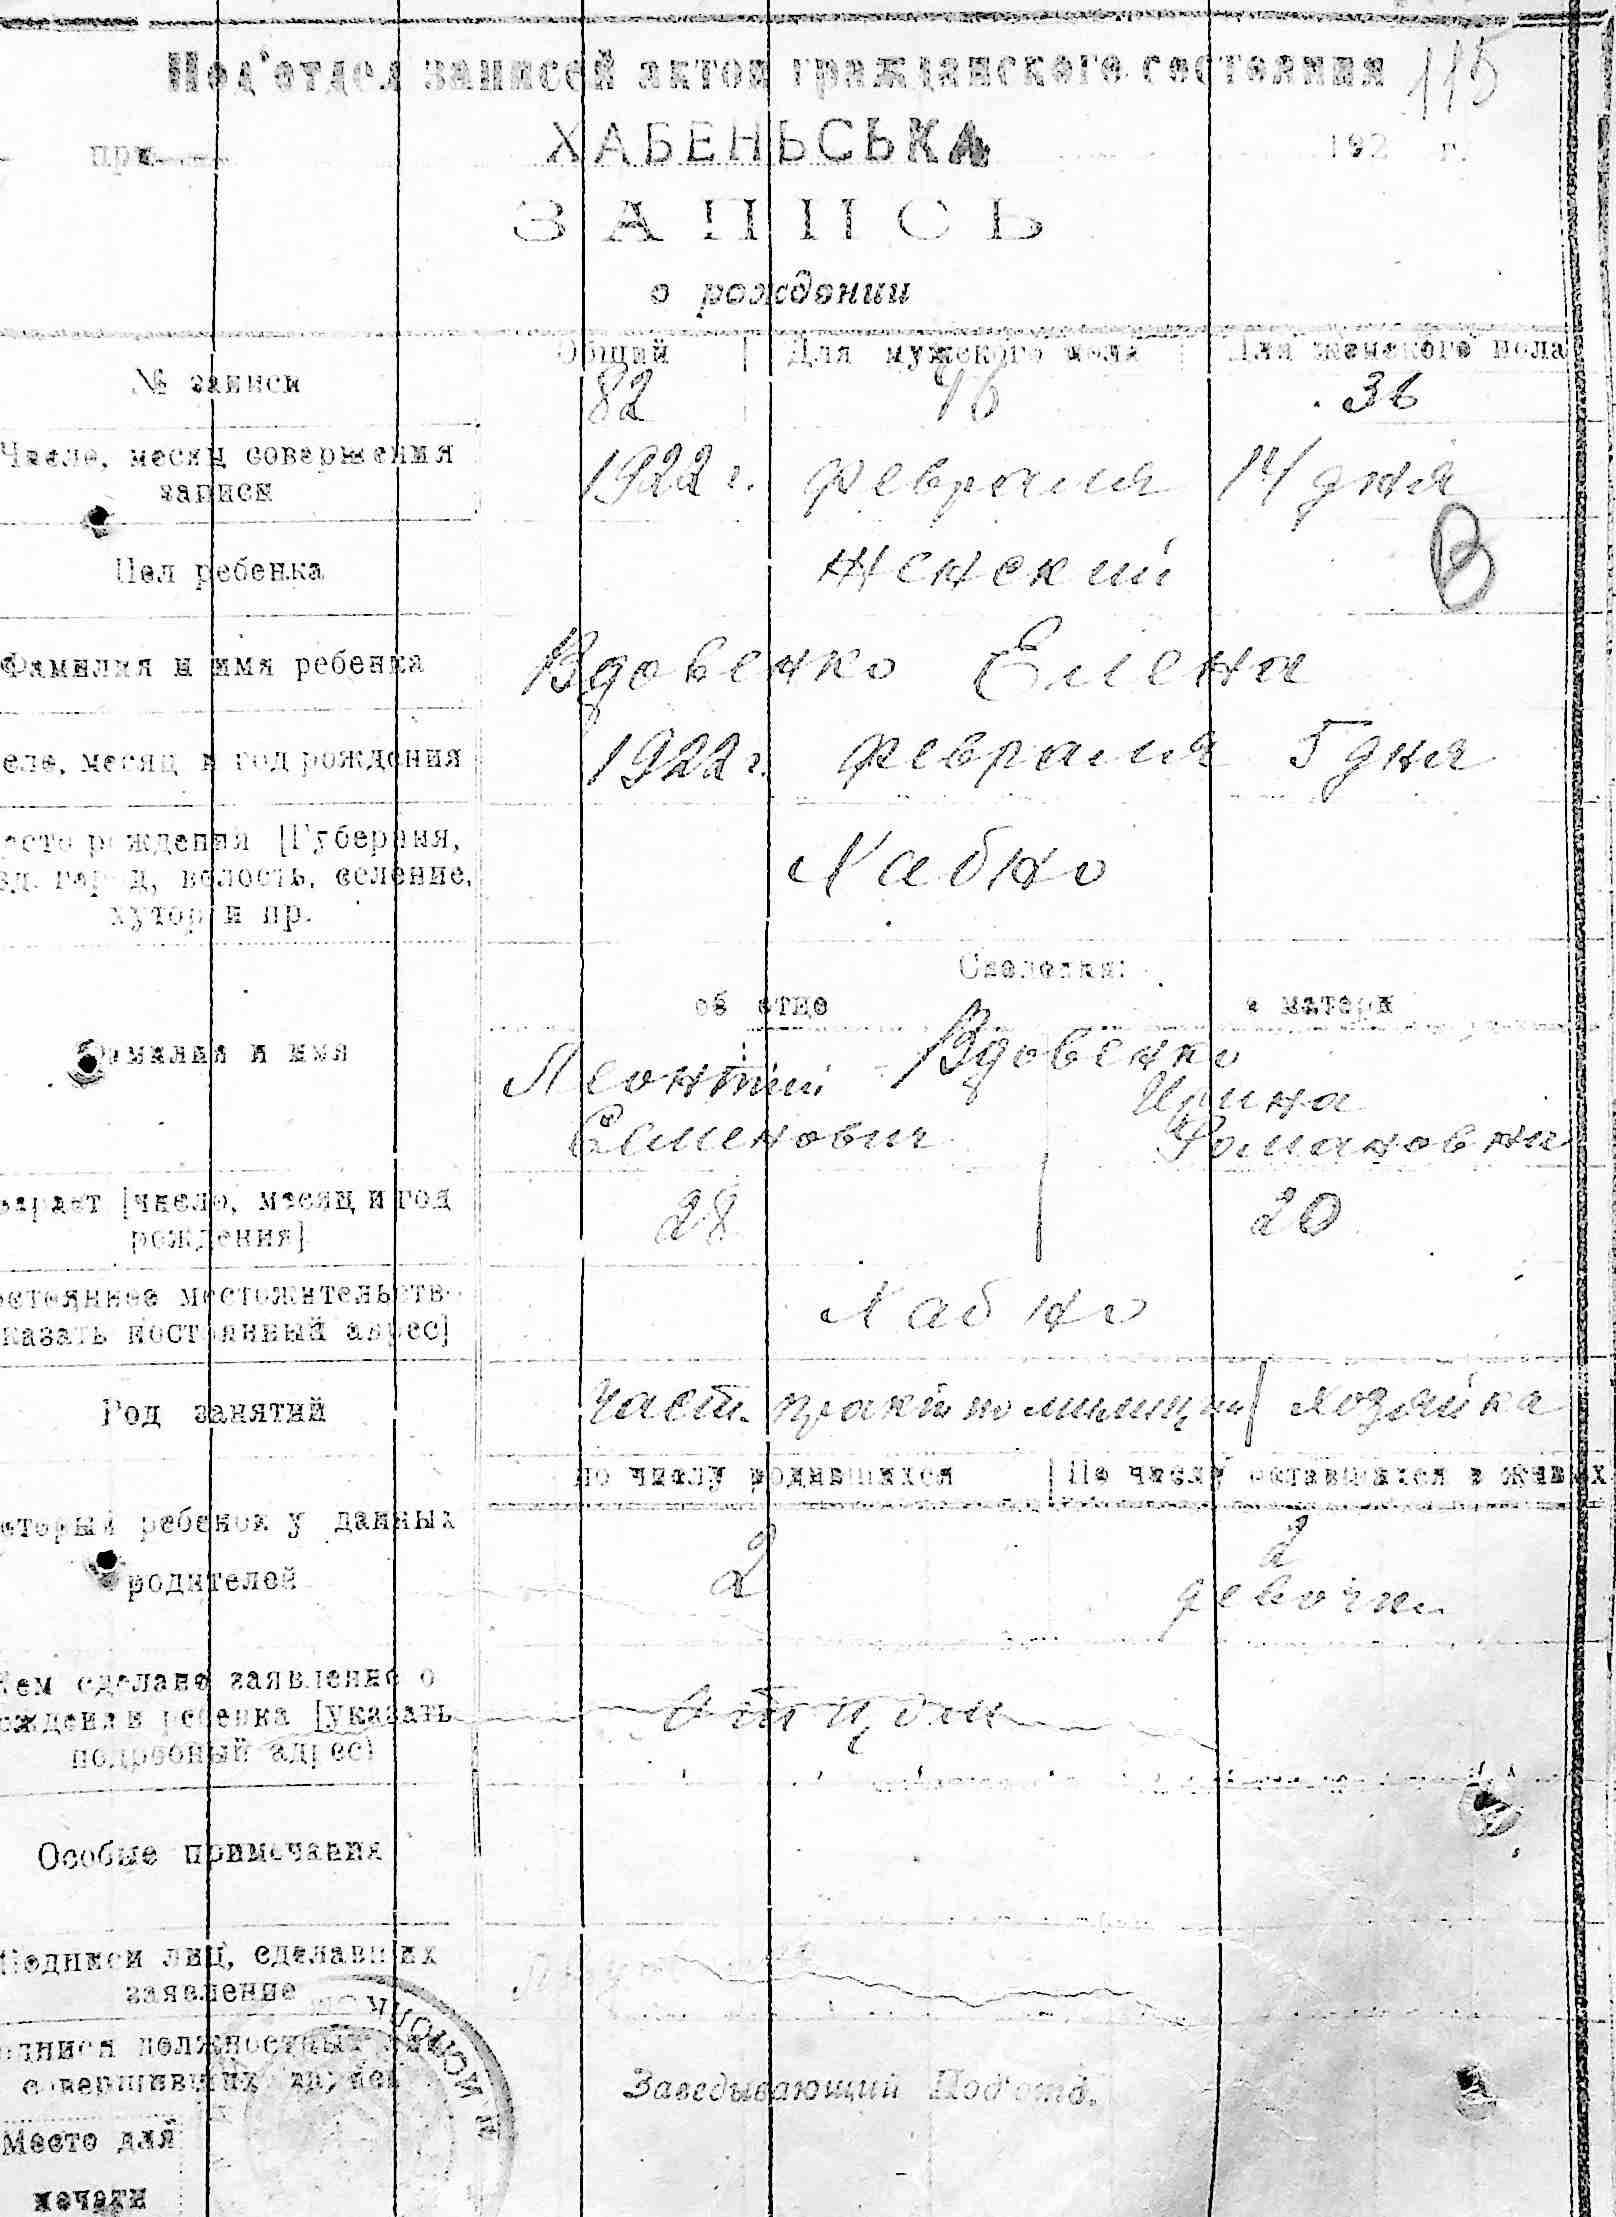 Под'отдел записей актов гражданского состояния 115
при ХАБЕНЬСЬКА 192 г.
ЗАПИСЬ
о рождении
№ записи
Общий | Для мужского пола | Для женского пола
82 46 36
Число, месяц совершения
записи
1922 г. февраля 14 дня
В
Пол ребенка
женский
Фамилия и имя ребенка
Вдовенко Елена
сло, месяц и год рождения
1922 г. февраля 5 дня
есто рождения [Губерния,
зд, город, волость, селение,
хутор и пр.
Хабно
Сведения:
об отце о матери
Фамилия и имя
Вдовенко
Леонтий Ирина
Семенович Романовна
зраст [число, месяц и год
рождения]
28 20
остоянное местожительств
казать постоянный адрес]
Хабно
Род занятий
част. практ по милиции | хозяйка
По числу родившихся | По числу оставшихся в живых
оторый ребенок у данных
родителей
2 2
девочки
Кем сделано заявление о
ождении ребенка [указать
подробный адрес]
Отцом
Особые примечания
Подписи лиц, сделавших
заявление
одписи должностных лиц
совершивших запись
Заведывающий Под'отд.
Место для
печати